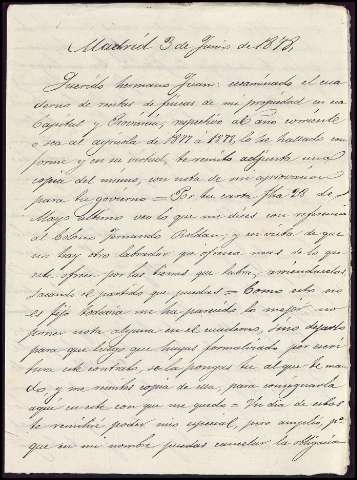 Madrid 3 de Junio de 1878.
Querido hermano Juan: examinado el cua
derno de rentas de fincas de mi propiedad en esa
Capital y Provincia, respectivo al año corriente
o sea al agricola de 1877 á 1878, lo he hallado con
forme y en su virtud, te remito adjunta una
copia del mismo, con nota de mi aprovacion
para tu govierno = Por tu carta fha 28 de
Mayo ultimo veo lo que me dices con referencia
al Colono Fernando Roldan, y en vista de que
no hay otro labrador que ofrezca mas de lo que
este ofrece por las tierras que labra, arriendaselas
sacando el partido que puedas = Como esto no
es fijo todavia me ha parecido lo mejor no
poner nota alguna en el cuaderno, sino dejarlo
para que luego que hayas formalizado por escri
tura este contrato, se la pongas tu al que te man
do, y me remitas copia de ella, para consignarla
aqui en este con que me quedo = Un dia de estos
te remitiré poder mio especial, pero amplio, pª
que en mi nombre puedas cancelar la obligacion